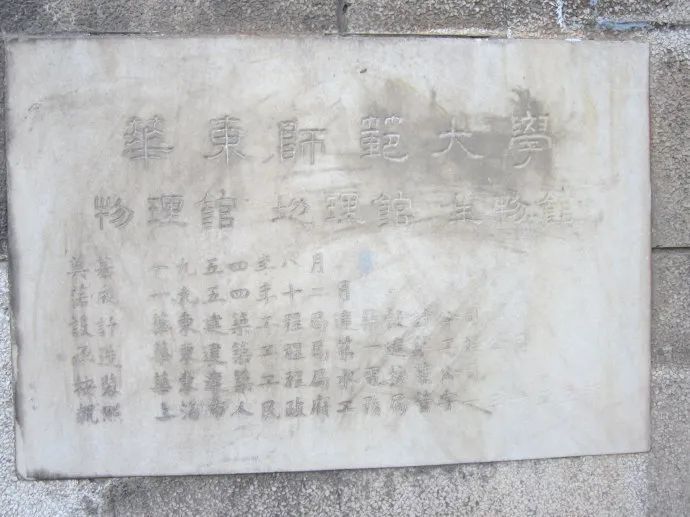 華東師範大學
物理館 地理館 生物館
奠基 一九五四年八月
落成 一九五四年十二月
設計 華東建築工程局建築設計公司
承造 華東建築工程局第一
按裝 華東建築工程局水電
執照 上海市人民政府工務局營